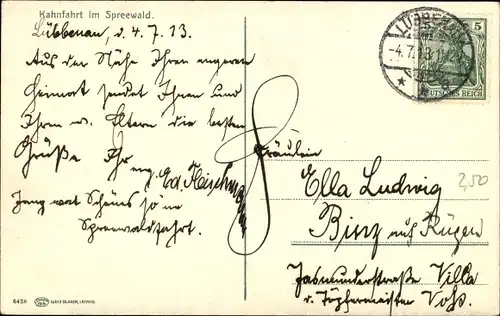 Kahnfahrt im Spreewald.
Lübbenau, d. 4.7.13.
Aus der Nähe Ihrer engeren
Heimat sendet Ihnen und
Ihren w. Eltern die besten
Grüße Ihr
erg. Ed. Fleischmann
Ganz was Schönes so 'ne
Spreewaldfahrt.
LÜBBENAU
-4.7.13
5
DEUTSCHES REICH
Fräulein
Ella Ludwig
Binz auf Rügen
Jasmunderstraße Villa
v. Töpfermeister Voß.
2,50
6438